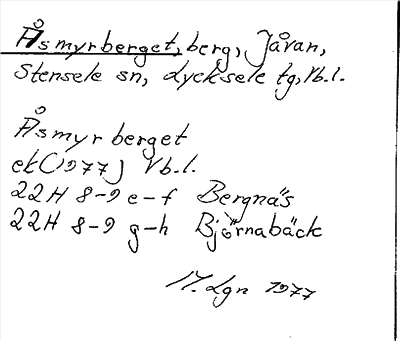 Åsmyrberget, berg, Jåvan,
Stensele sn, Lycksele tg, Vb.l.
Åsmyrberget
ek (1977) Vb.l.
22H 8-9 e-f Bergnäs
22H 8-9 g-h Björnabäck
17. Lgn 1977